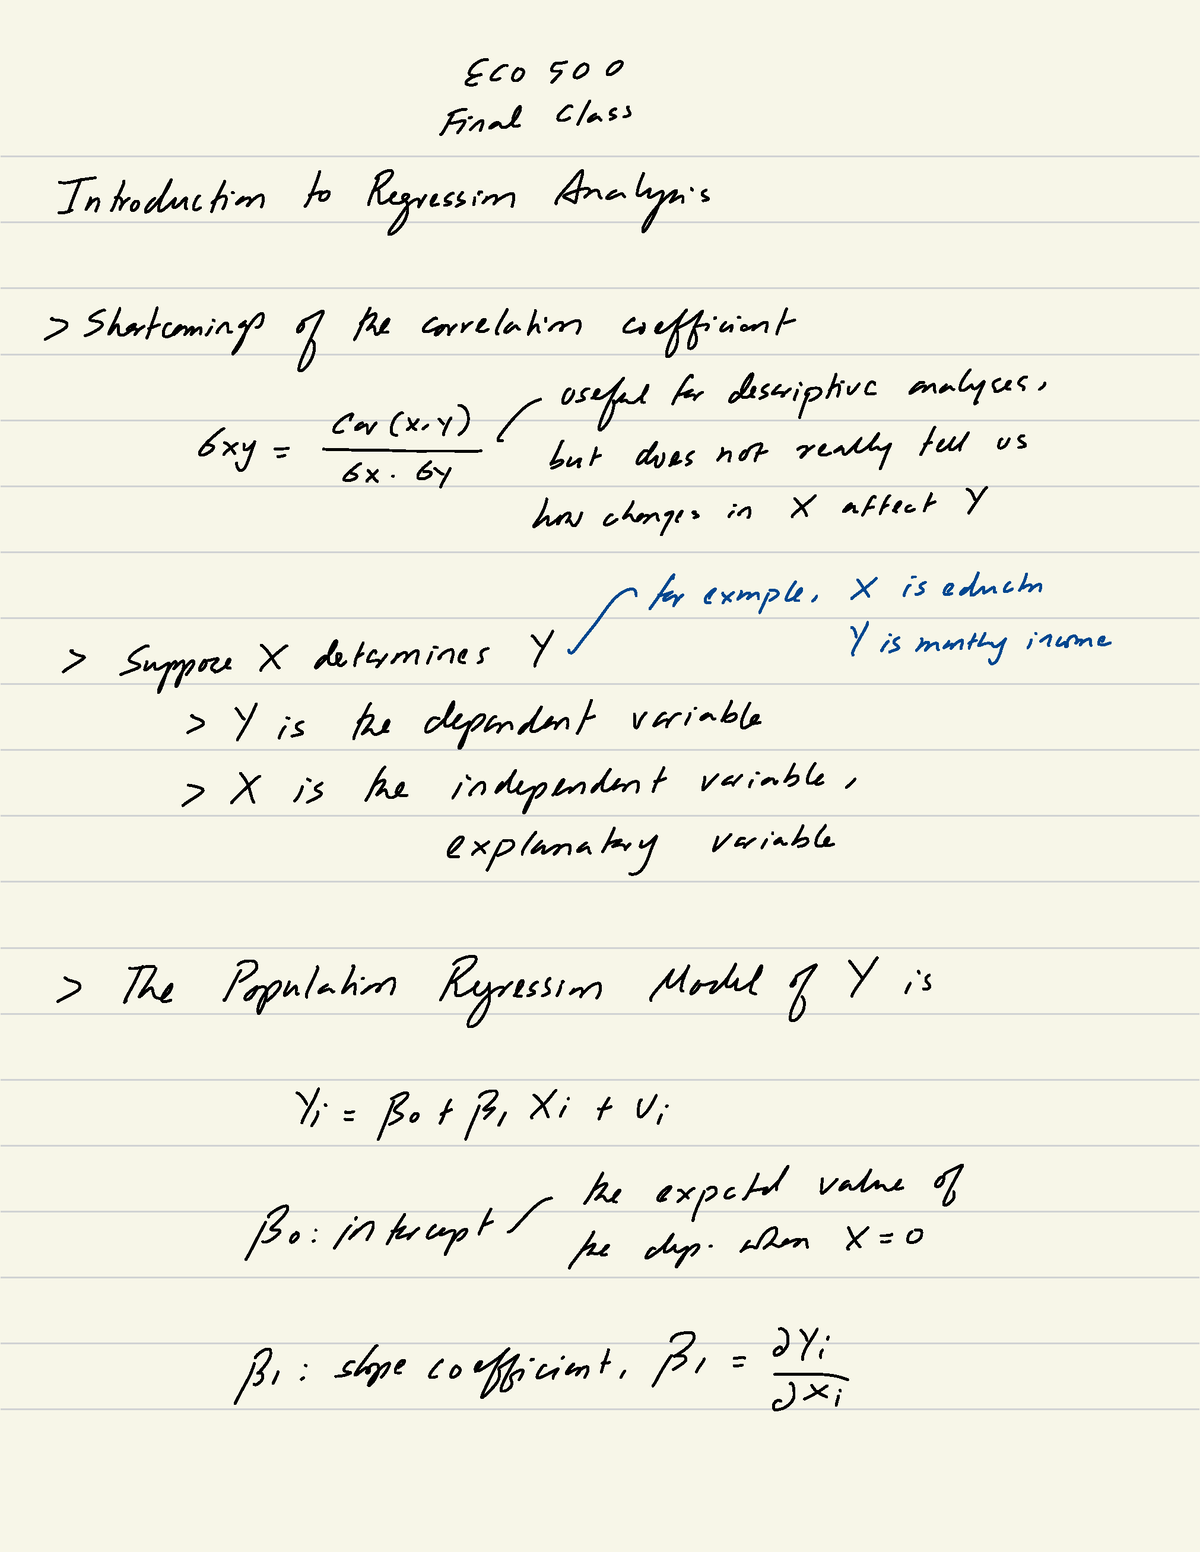 ECO 500
Final Class
Introduction to Regression Analysis
> Shortcomings of the correlation coefficient
σxy = Cov (X,Y) / σx · σy
useful for descriptive analyses,
but does not really tell us
how changes in X affect Y
for exmple, X is eductn
Y is monthly income
> Suppose X determines Y
> Y is the dependent variable
> X is the independent variable,
explanatory variable
> The Population Regression Model of Y is
Yi = β0 + β1 Xi + Ui
β0: intercept
the expectd value of
the dep. when X = 0
β1: slope coefficient, β1 = ∂Yi / ∂Xi